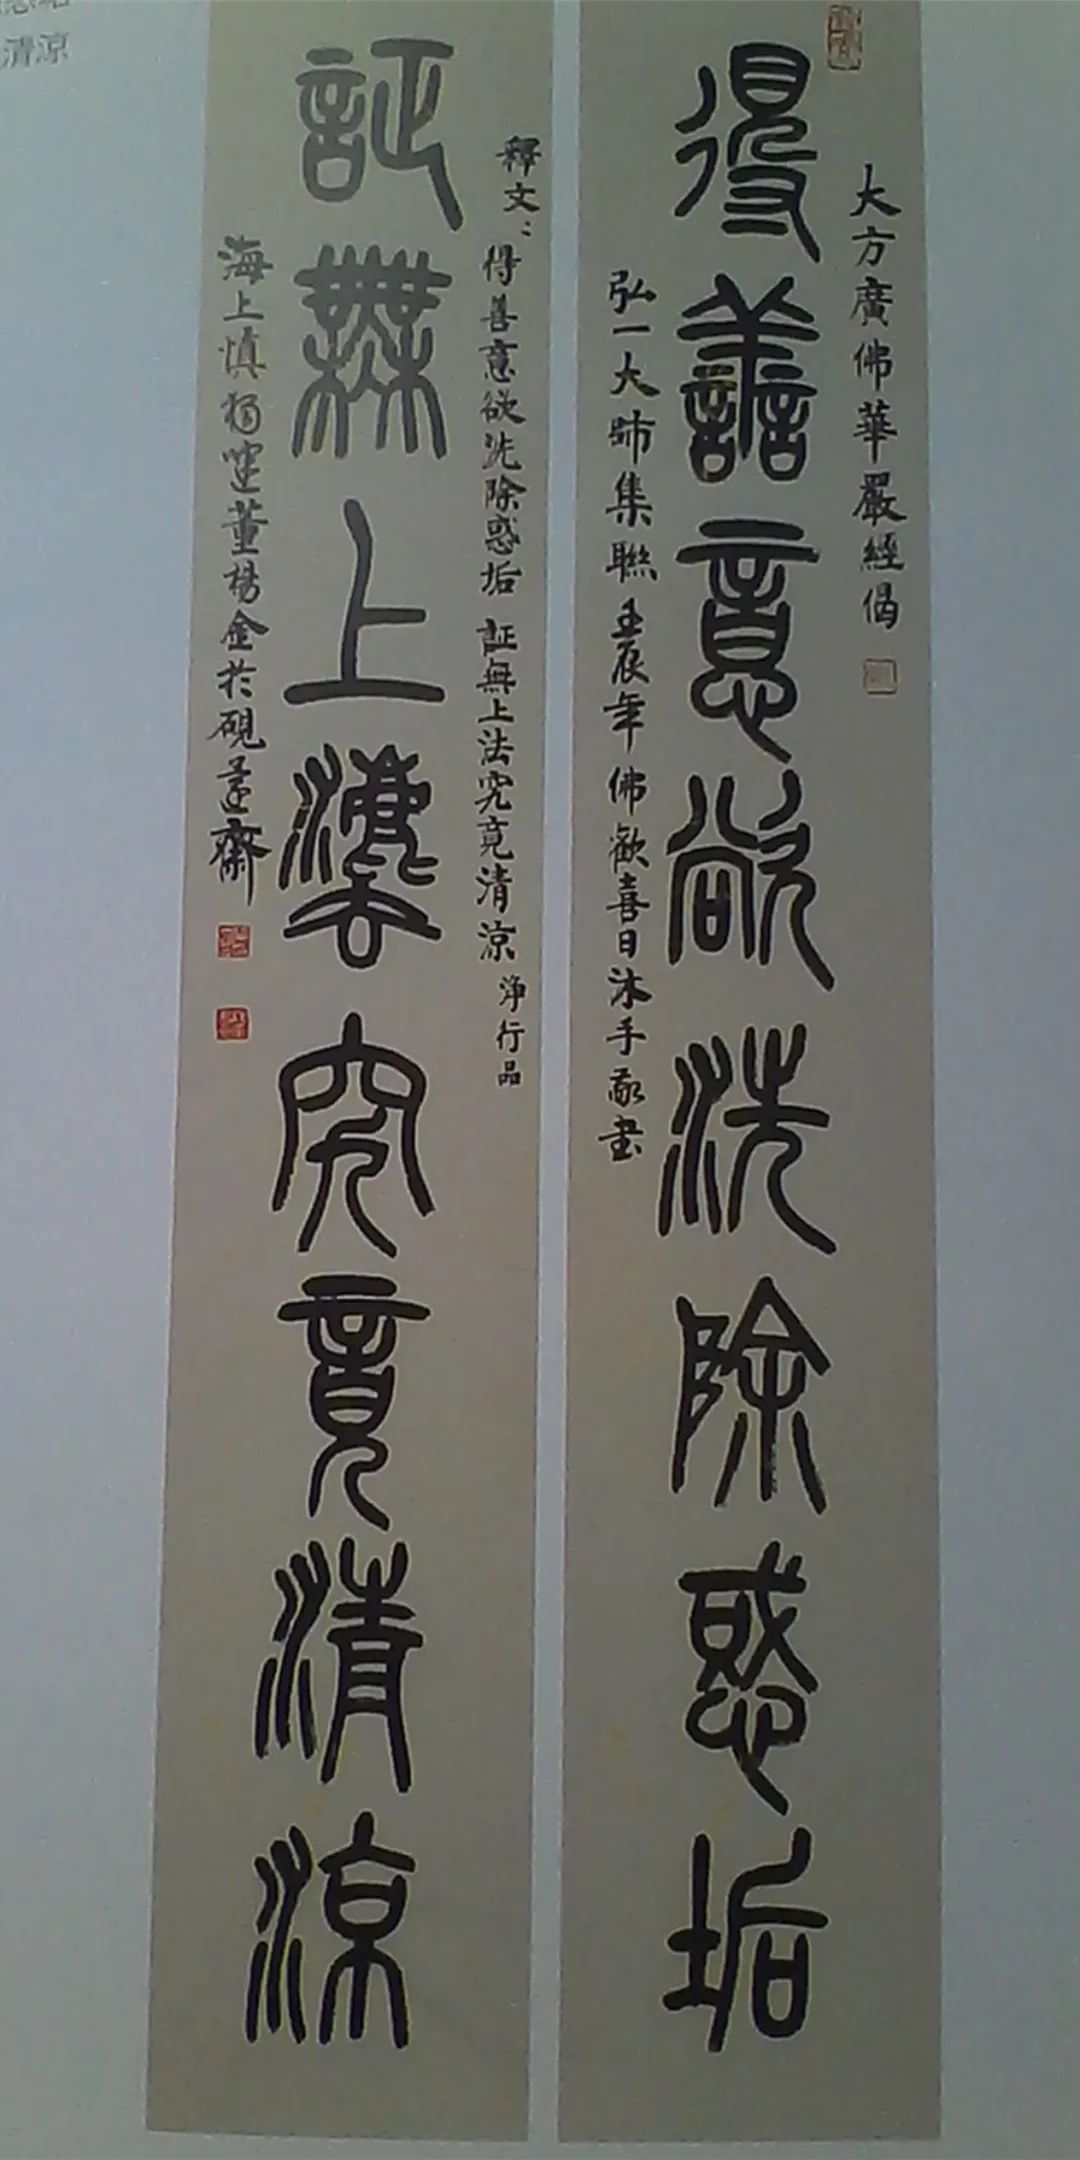 大方廣佛華嚴經偈
得善意欲洗除惑垢
弘一大師集聯壬辰年佛歡喜日沐手敬書
釋文：得善意欲洗除惑垢 証無上法究竟清涼 淨行品
証無上灋究竟清涼
海上慎獨 董楊金於硯 齋
清涼